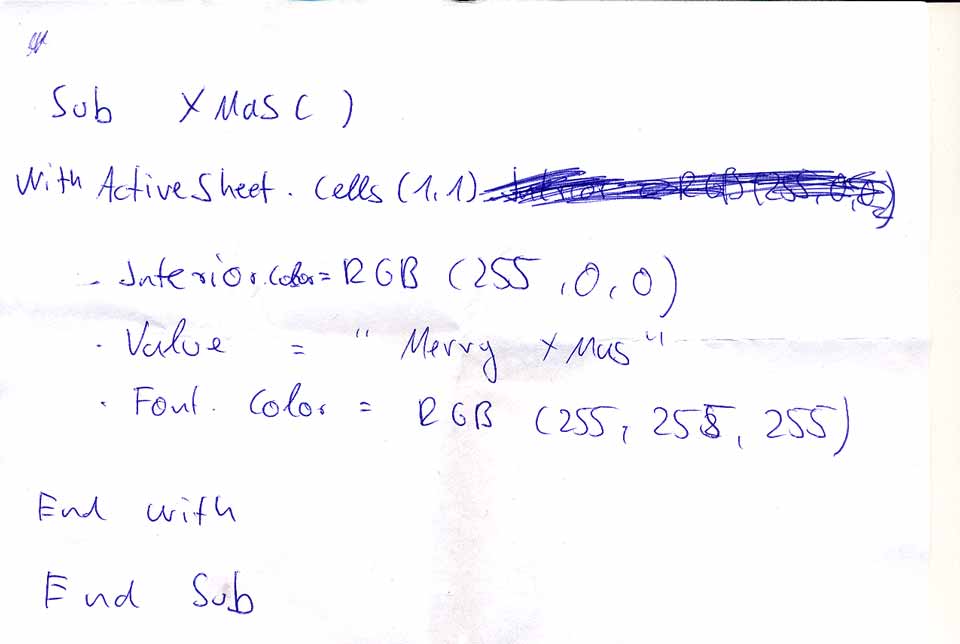 Sub XMas( )
With ActiveSheet. Cells (1,1)
. Interior.Color= RGB (255,0,0)
. Value = "Merry XMas"
. Font. Color = RGB (255, 255, 255)
End with
End Sub